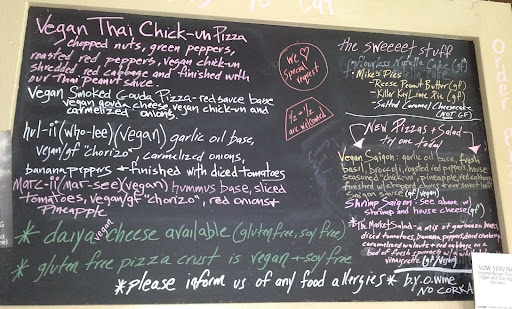 Vegan Thai Chick-un Pizza
chopped nuts, green peppers,
roasted red peppers, vegan chick-un
shredded red cabbage and finished with
our Thai peanut sauce.
Vegan Smoked Gouda Pizza - red sauce base
vegan gouda cheese, vegan chick-un and
carmelized onions.
hul-ii (who-lee) (Vegan) garlic oil base,
vegan/gf "chorizo" carmelized onions,
banana peppers + finished with diced tomatoes
Marc-ii (mar-see) (vegan) hummus base, sliced
tomatoes, vegan/gf "chorizo", red onions +
Pineapple
* daiya vegan cheese available (gluten free, soy free)
* gluten free pizza crust is vegan + soy free
*please inform us of any food allergies*
We ♡
Special
request
½ + ½
are welcomed
the sweeeet stuff
flourless Nutella Cake (gf)
• Mike's Pies
- Reese Peanut Butter (gf)
- Killer Key Lime Pie (gf)
- Salted Caramel Cheesecake
(NOT GF)
New Pizzas + Salad
try one today
Vegan Saigon: garlic oil base, fresh
basil, broccoli, roasted red peppers, house
seasoned "chick-un", pineapple, red cabbage
finished w/ chopped our sweet heat
Saigon sauce (gf/vegan)
Shrimp Saigon: see above w/
shrimp and house cheese (gf)
*The Market Salad - a mix of garbanzo beans,
diced tomatoes, banana peppers, dried cranberry,
caramelized walnuts + red cabbage on a
bed of fresh spinach w/
vinaigrette (gf/vegan)
b.y.o. wine
NO CORKA
Orde
NOW SERVING